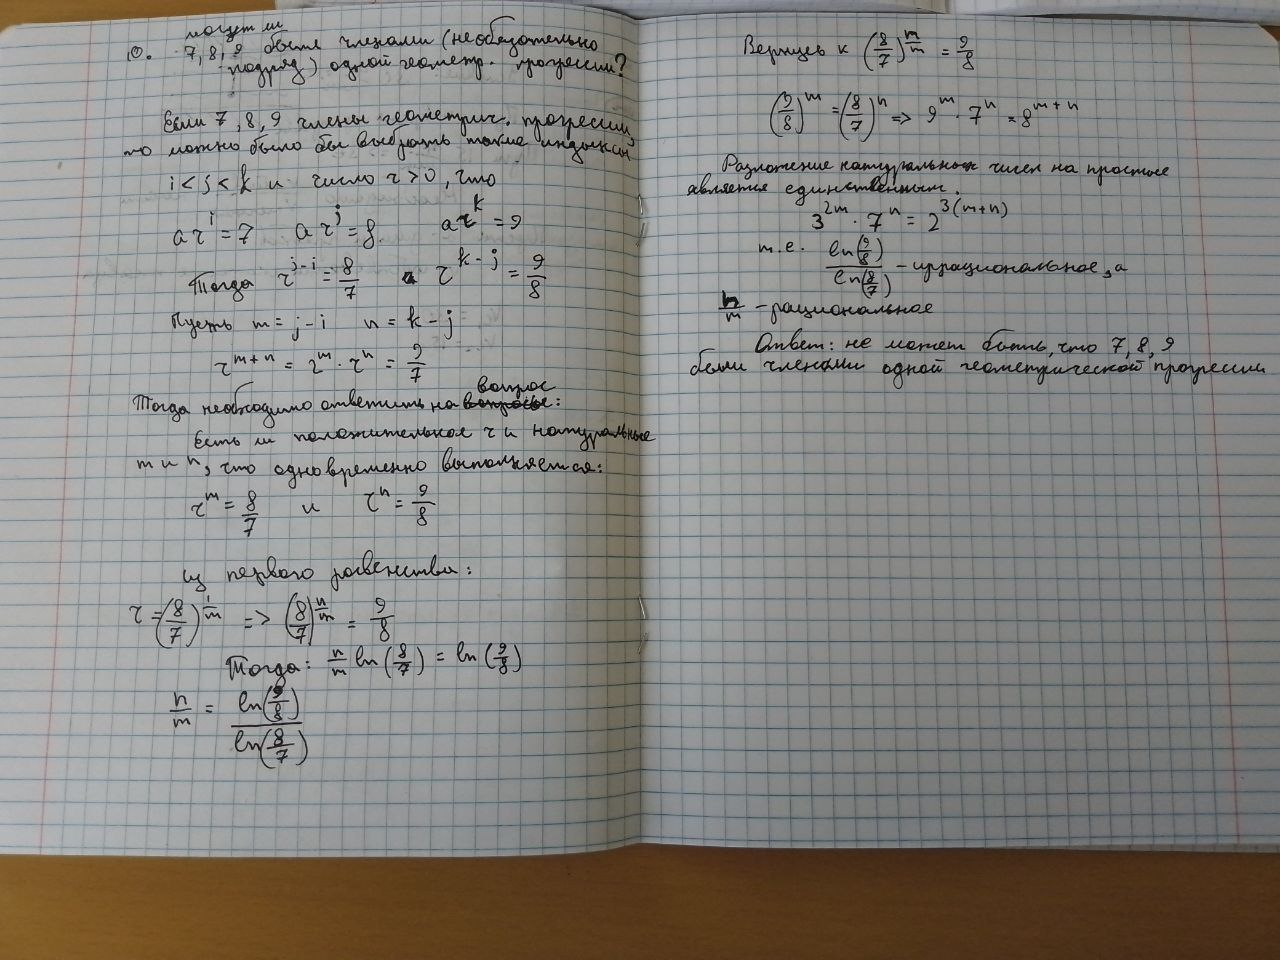 могут ли
10. 7, 8, 9 быть членами (необязательно
подряд) одной геометр. прогрессии?
Если 7, 8, 9 члены геометрич. прогрессии,
то можно было бы выбрать такие индексы
i < j < k и число r > 0, что
ar^i = 7 ar^j = 8 ar^k = 9
Тогда r^{j-i} = 8/7 и r^{k-j} = 9/8
Пусть m = j-i n = k-j
r^{m+n} = r^m · r^n = 9/7
Тогда необходимо ответить на вопрос:
Есть ли положительное r и натуральные
m и n, что одновременно выполняется:
r^m = 8/7 и r^n = 9/8
Из первого равенства:
r = (8/7)^{1/m} => (8/7)^{n/m} = 9/8
Тогда: n/m ln(8/7) = ln(9/8)
n/m = ln(9/8)/ln(8/7)
Вернцев к (8/7)^{m/m} = 9/8
(9/8)^m = (8/7)^n => 9^m · 7^n = 8^{m+n}
Разложение натуральных чисел на простые
является единственным.
3^{2m} · 7^n = 2^{3(m+n)}
т.е. ln(9/8)/ln(8/7) - иррациональное, а
n/m - рациональное
Ответ: не может быть, что 7, 8, 9
были членами одной геометрической прогрессии